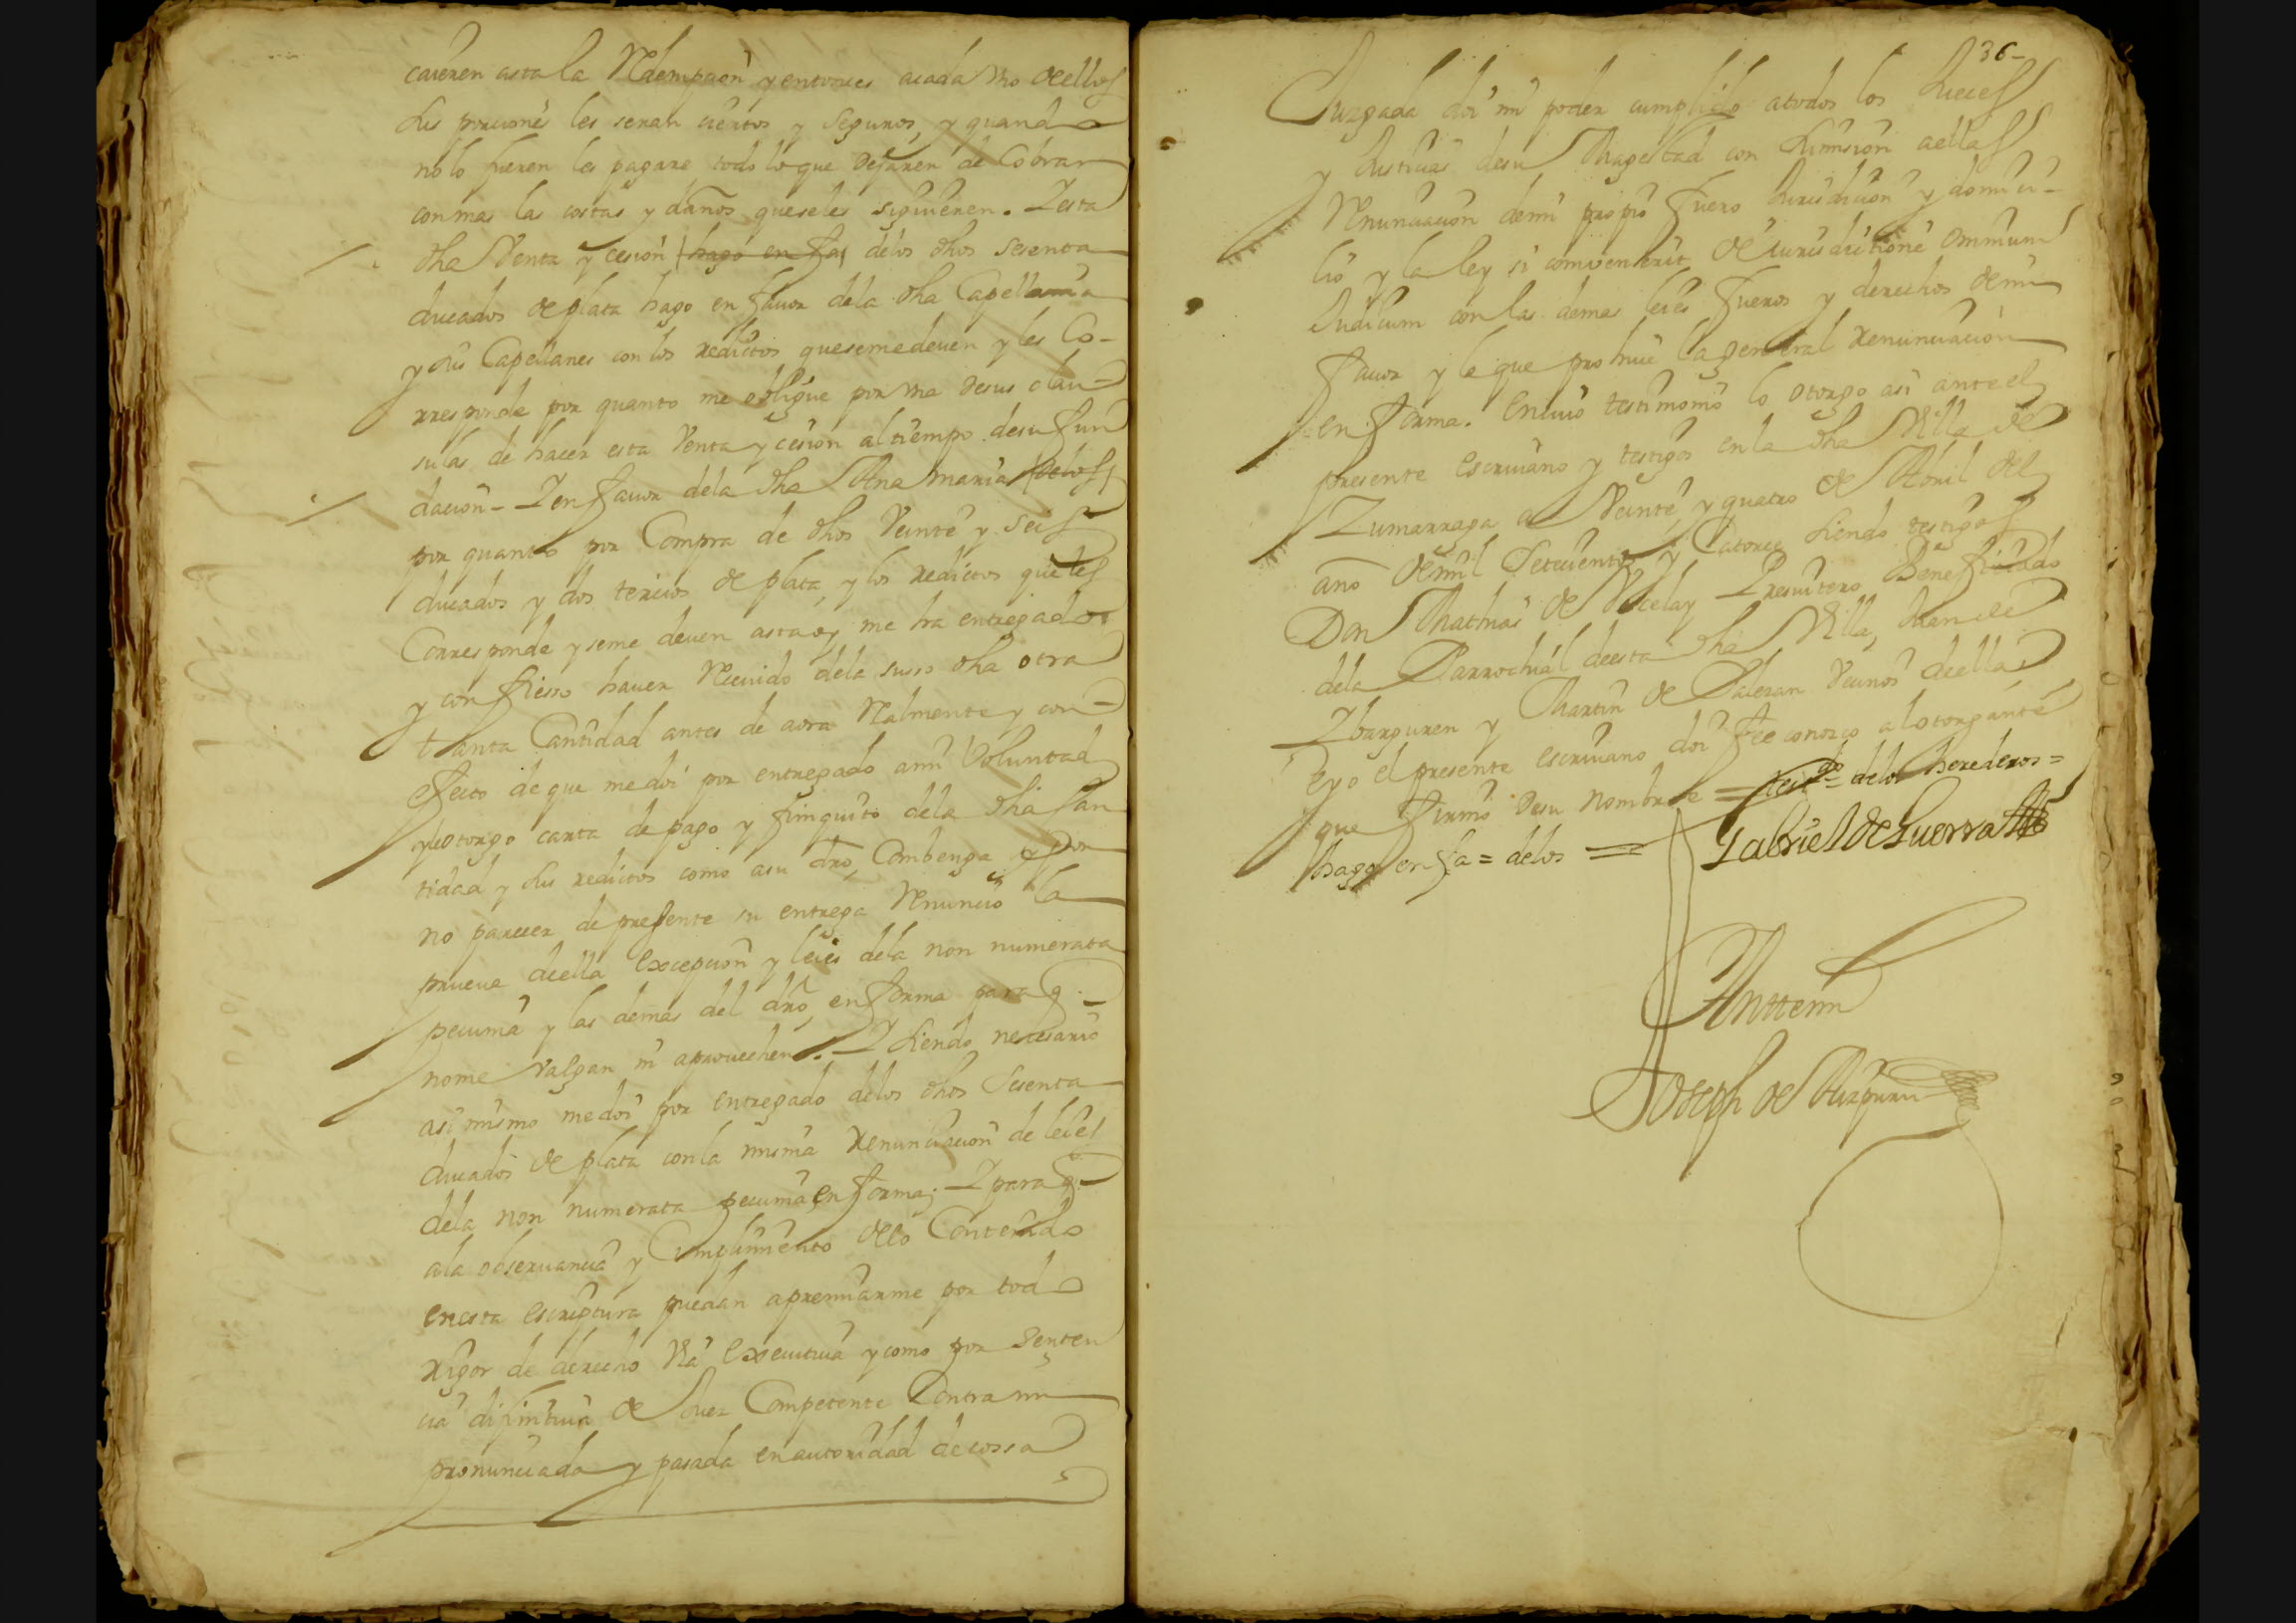 caieren asta la Redempcion y entonces acada vno de ellos
sus porciones les seran ciertos y seguros, y quando
nolo fueren les pagare todo loque Dejaren de Cobrar
conmas las costas y daños queseles siguieren. Y esta
dha Venta y cesion (hago en fa) delos dhos sesenta
ducados de plata hago en fauor dela dha Capellania
y sus Capellanes con los reditos quesemedeuen y les Co-
rresponde por quanto me obligue por vna desus clau-
sulas de hacer esta Venta y cesion altiempo desu fun
dacion - Y en fauor dela dha Ana maria (delos)
por quanto por Compra de dhos Veinte y seis
ducados y dos tercios de plata y los reditos que les
Corresponde y seme deuen asta oy me ha entregado
y confiesso hauer Reciuido dela suso dha otra
tanta Cantidad antes de aora Realmente y con
efecto de que medoi por entregado ami Voluntad
y otorgo carta de pago y finiquito dela dha can
tidad y sus reditos como asu dro, Combenga y por
no parecer de presente su entrega Renuncio la
prueua deella excepcion y leies dela non numerata
pecunia y las demas del dro, en forma para q.
nome valgan ni aprouechen. Y siendo necesario
asi mismo medoi por entregado delos dhos Sesenta
ducados de plata conla misma renunciacion de leies
dela non numerata pecunia en forma; Y para q.
ala obseruancia y Cumplimiento delo Contenido
enesta escriptura puedan apremiarme por todo
rigor de derecho Via executiua y como por senten
cia difinitiua de Juez Competente Contra mi
pronunciada y pasada en autoridad de cossa
36-
Juzgada doi mi poder cumplido atodos los Jueces
y Justicias desu Magestad con sumision aellas
Renunciacion demi propio fuero Jurisdicion y domici-
lio y la ley si combenerit de iurisdictione omnium
Judicum con las demas leies fueros y derechos demi
fauor y la que prohiue la general renunciacion
en forma. en cuio testimonio lo otorgo asi anteel
presente escriuano y testigos en la dha Villa de
Zumarraga a Veinte y quatro de Abril del
año de mil Setecientos y Catorce siendo testigos
Don Mathias de Vicelay Presuitero Beneficiado
dela Parrochial deesta dha Villa, Juan de
Ybarguren y Martin de Saleran Vecinos deella,
e yo el presente escriuano doi fee conozco alotorgante
que firmo desu nombre = testdo. delos herederos =
hago en fa = delos =
Gabriel de Guerra
Anttemi
Joseph de Aizpuru